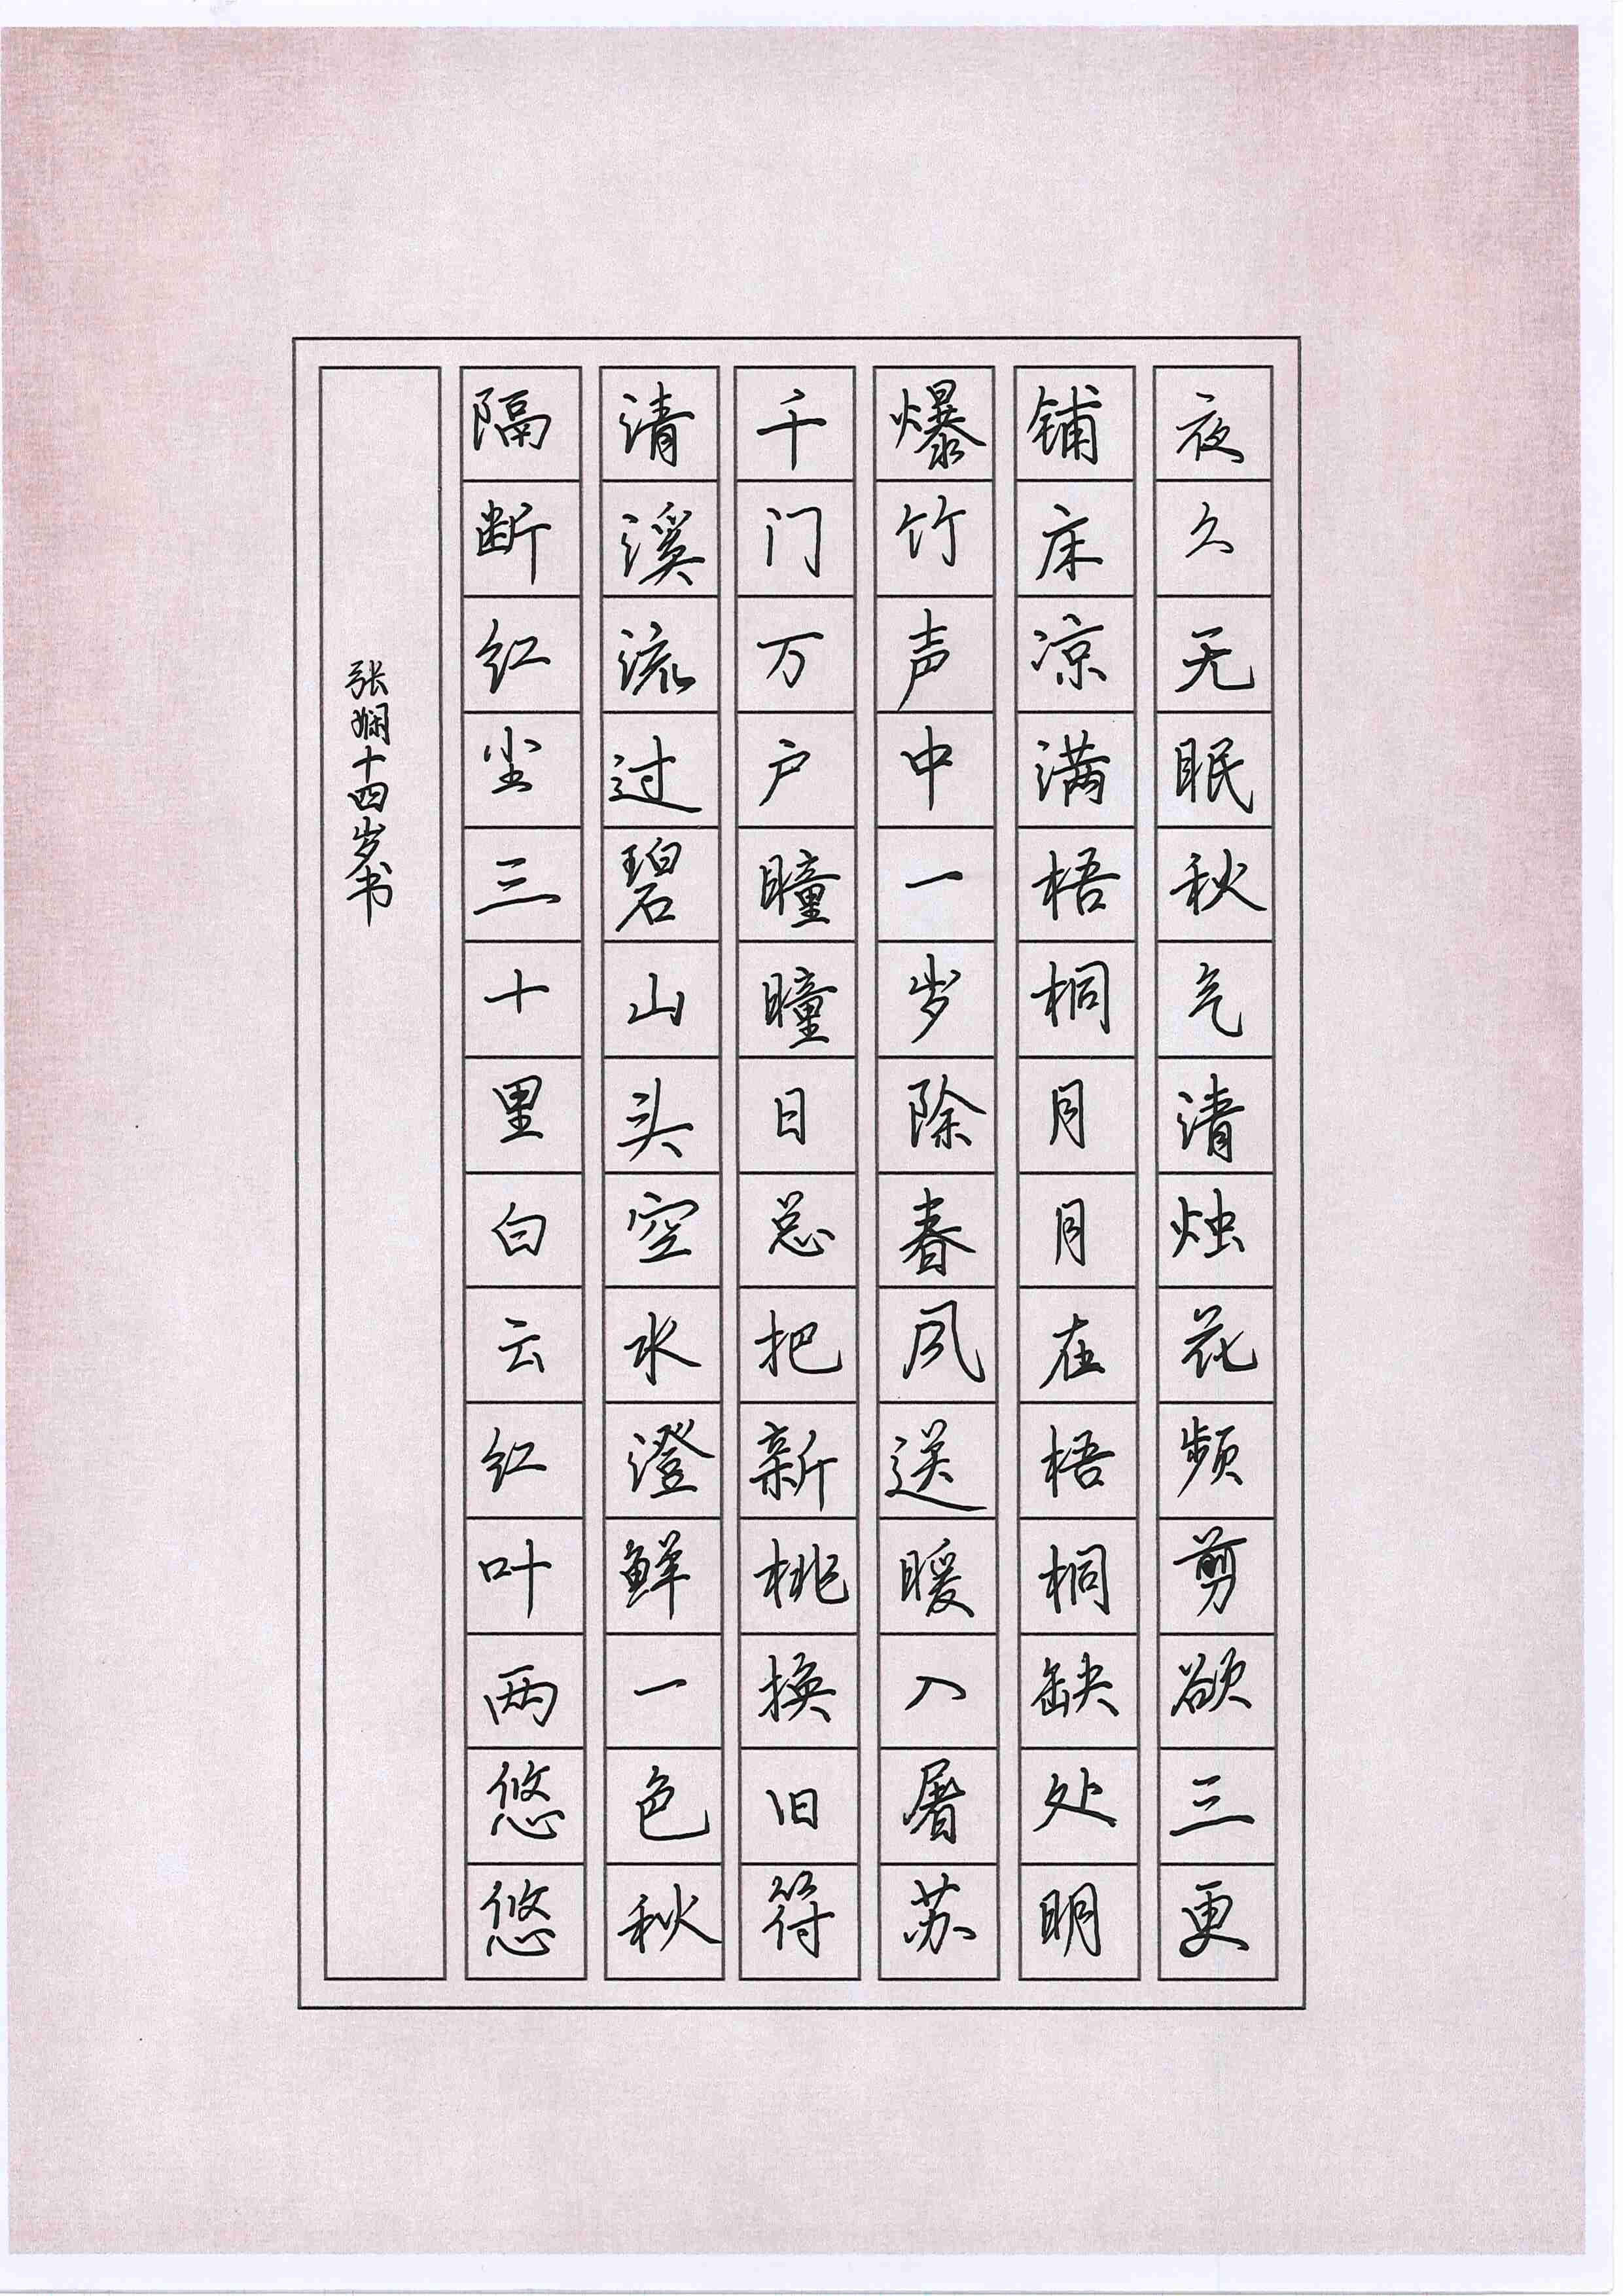 夜久无眠秋气清烛花频剪欲三更
铺床凉满梧桐月月在梧桐缺处明
爆竹声中一岁除春风送暖入屠苏
千门万户瞳瞳日总把新桃换旧符
清溪流过碧山头空水澄鲜一色秋
隔断红尘三十里白云红叶两悠悠
张娴十四岁书